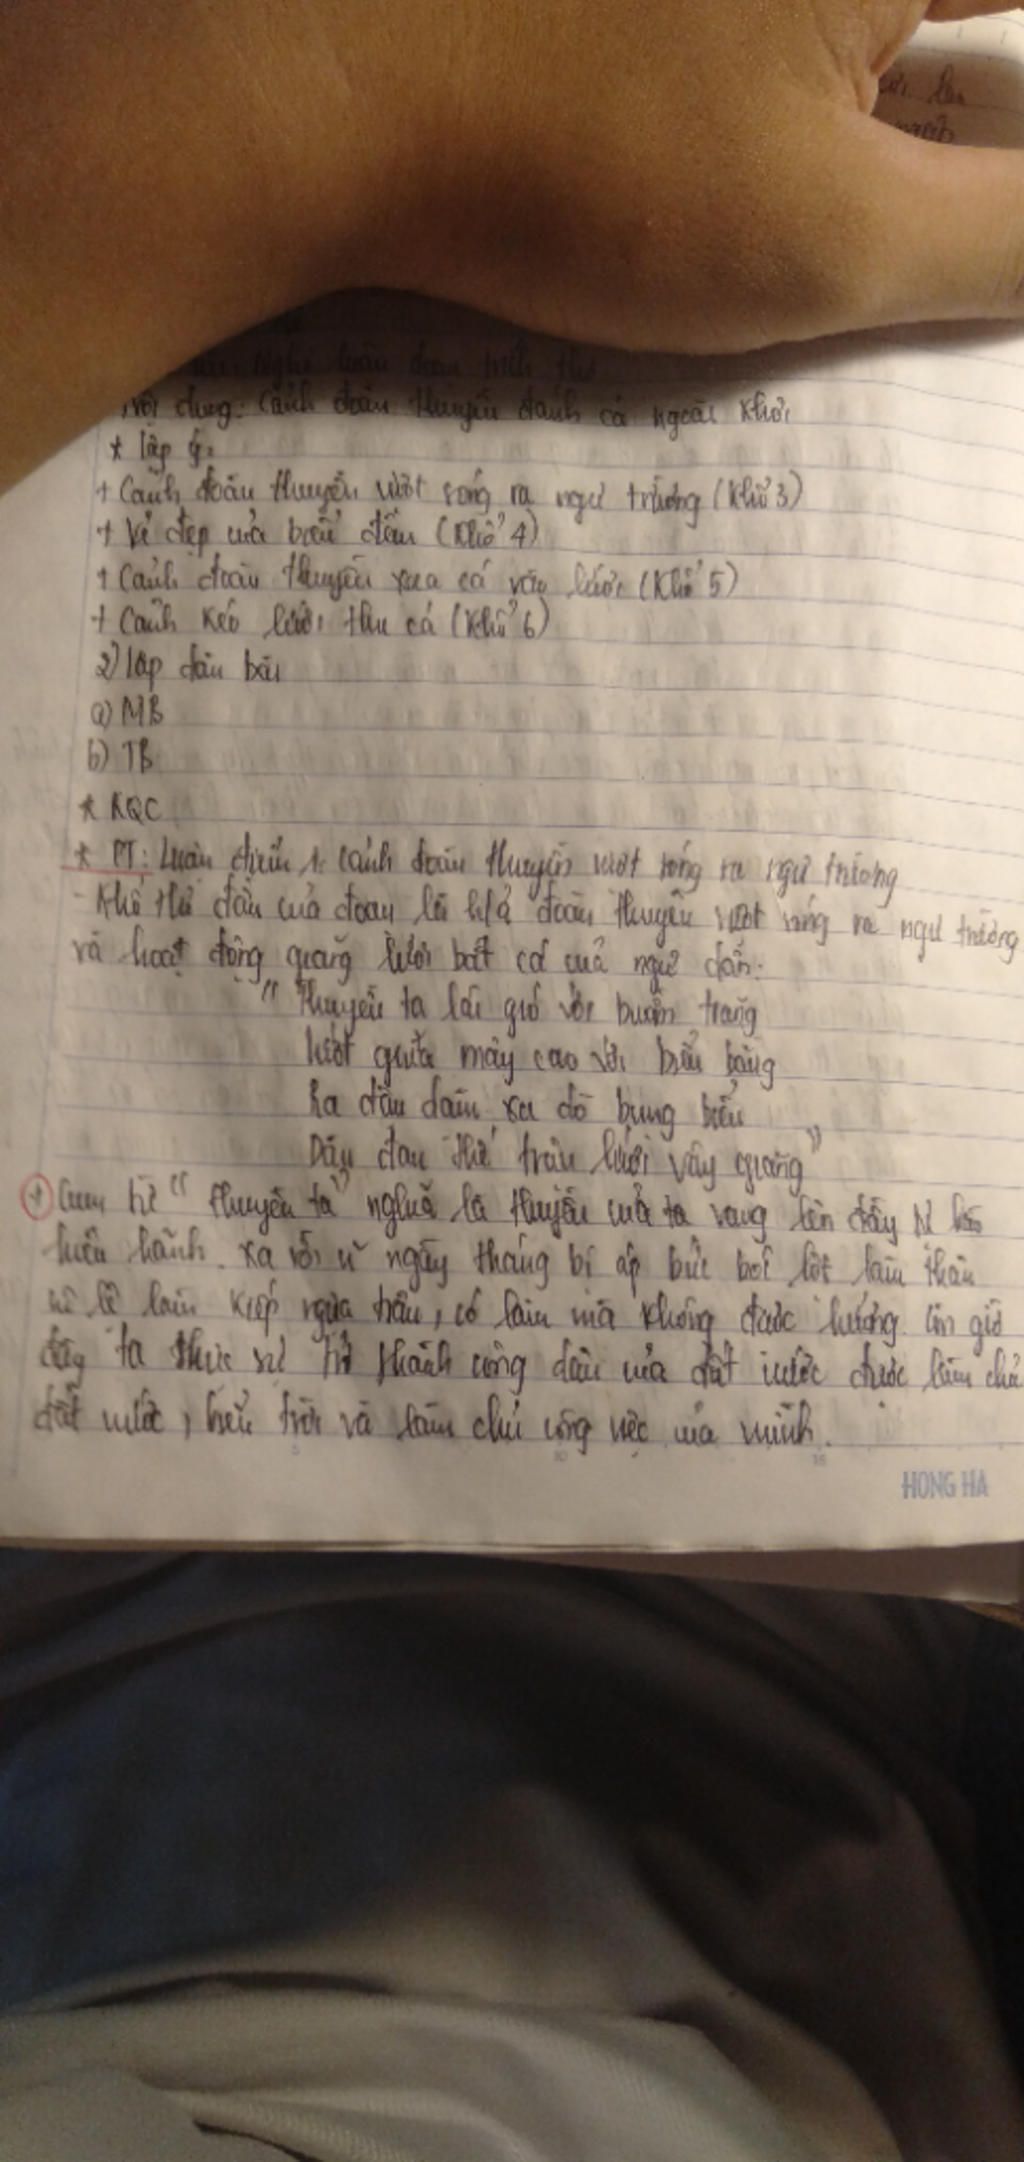 Nghị luận đoạn trích thơ
Nội dung: Cảnh đoàn thuyền đánh cá ngoài khơi
* lập ý:
+ Cảnh đoàn thuyền vượt sóng ra ngư trường (Khổ 3)
+ Vẻ đẹp của biển đêm (Khổ 4)
+ Cảnh đoàn thuyền xua cá vào lưới (Khổ 5)
+ Cảnh kéo lưới thu cá (Khổ 6)
2) lập dàn bài
a) MB
b) TB
* KQC
* PT: Luận điểm 1: cảnh đoàn thuyền vượt sóng ra ngư trường
- Khổ thơ đầu của đoạn là h/ả đoàn thuyền vượt sóng ra ngư trường
và hoạt động quăng lưới bắt cá của ngư dân:
" Thuyền ta lái gió với buồm trăng
lướt giữa mây cao với biển bằng
Ra đậu dặm xa dò bụng biển
Dàn đan thế trận lưới vây giăng"
+ Cụm từ " thuyền ta" nghĩa là thuyền của ta vang lên đầy tự hào
hiên hãnh. xa rồi ngày tháng bị áp bức bóc lột làm thân
nô lệ làm kiếp ngựa trâu, có làm mà không được hưởng. còn giờ
đây ta thực sự trở thành công dân của đất nước được làm chủ
đất nước, biển trời và làm chủ công việc của mình.
HONG HA